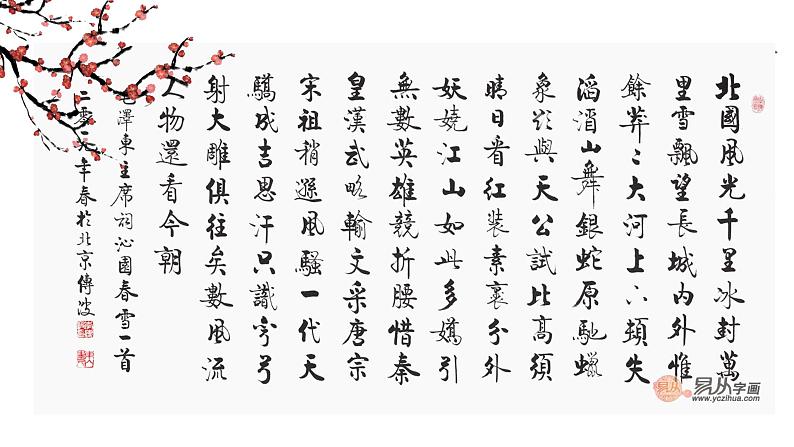 北國風光千里冰封萬
里雪飄望長城内外惟
餘莽〻大河上下頓失
滔滔山舞銀蛇原馳蠟
象欲與天公試比高須
晴日看紅裝素裹分外
妖嬈江山如此多嬌引
無數英雄競折腰惜秦
皇漢武略輸文采唐宗
宋祖稍遜風騷一代天
驕成吉思汗只識彎弓
射大雕俱往矣數風流
人物還看今朝
毛澤東主席詞沁園春雪一首
二零一九年春於北京傅波
易从字画
www.yczihua.com